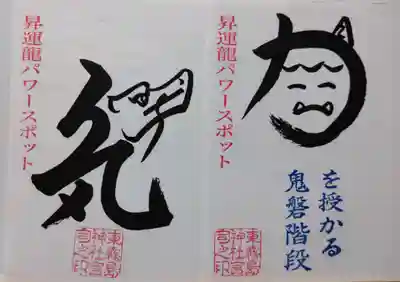 力
を授かる
鬼磐階段
昇運龍パワースポット
東霧島
神社宮
司之印
気
昇運龍パワースポット
東霧島
神社宮
司之印